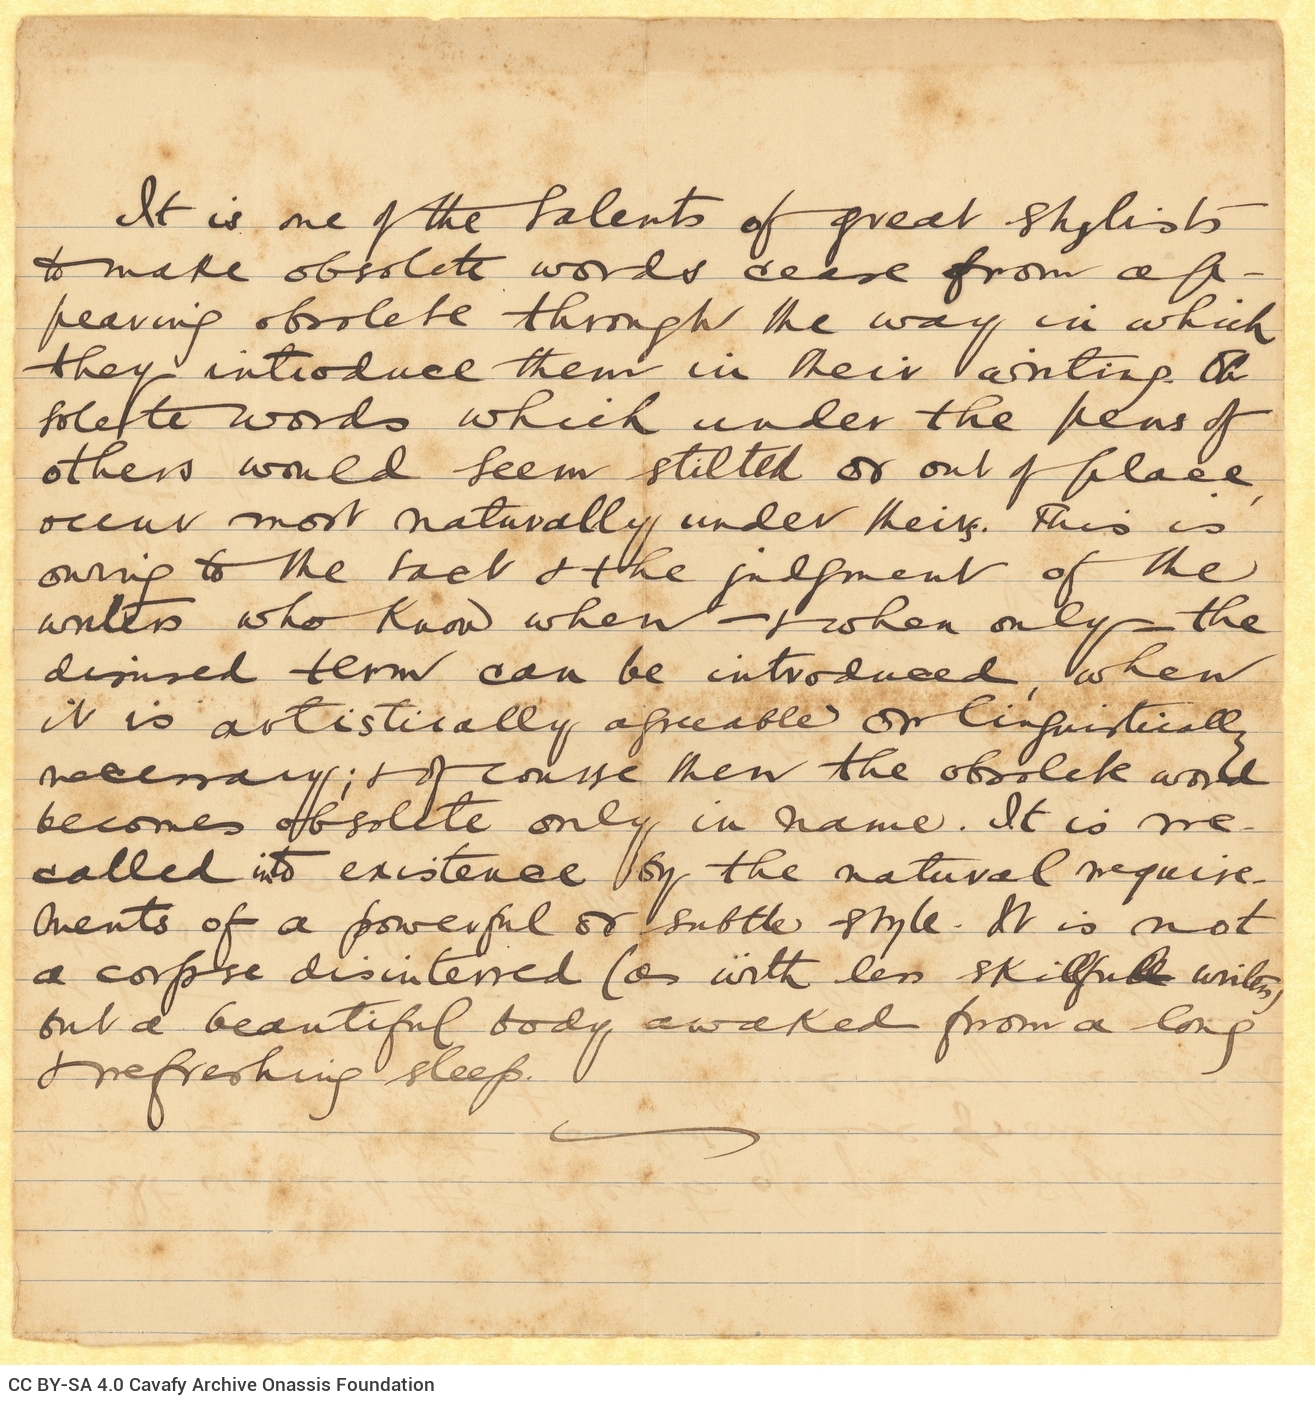 It is one of the talents of great stylists
to make obsolete words cease from ap-
pearing obsolete through the way in which
they introduce them in their writing. Ob
solete words which under the pens of
others would seem stilted or out of place,
occur most naturally under theirs. This is
owing to the tact & the judgment of the
writers who know when — & when only — the
disused term can be introduced, when
it is artistically agreeable or linguistically
necessary; & of course then the obsolete word
becomes obsolete only in name. It is re-
called into existence by the natural require-
ments of a powerful or subtle style. It is not
a corpse disinterred (as with less skilful writers)
but a beautiful body awaked from a long
& refreshing sleep.
CC BY-SA 4.0 Cavafy Archive Onassis Foundation